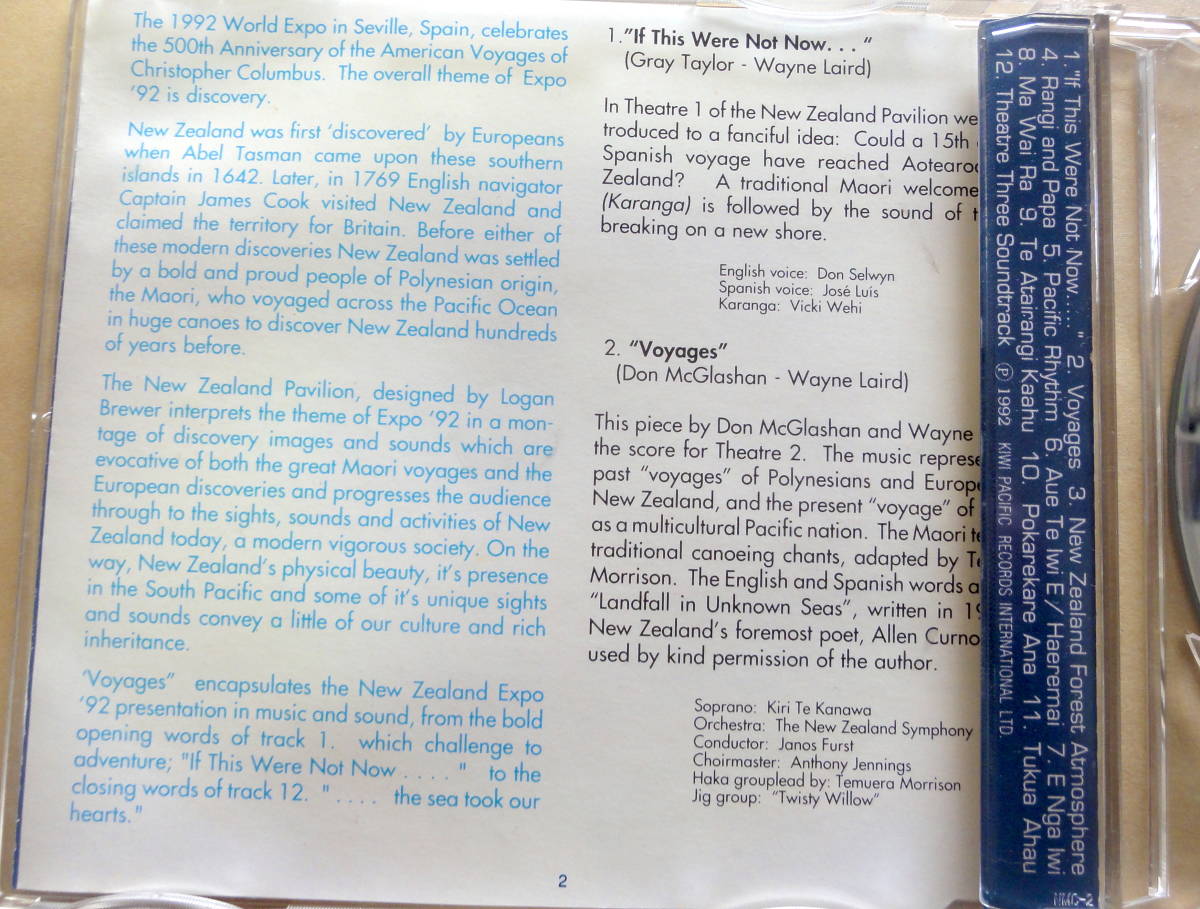 The 1992 World Expo in Seville, Spain, celebrates
the 500th Anniversary of the American Voyages of
Christopher Columbus. The overall theme of Expo
'92 is discovery.
New Zealand was first 'discovered' by Europeans
when Abel Tasman came upon these southern
islands in 1642. Later, in 1769 English navigator
Captain James Cook visited New Zealand and
claimed the territory for Britain. Before either of
these modern discoveries New Zealand was settled
by a bold and proud people of Polynesian origin,
the Maori, who voyaged across the Pacific Ocean
in huge canoes to discover New Zealand hundreds
of years before.
The New Zealand Pavilion, designed by Logan
Brewer interprets the theme of Expo '92 in a mon-
tage of discovery images and sounds which are
evocative of both the great Maori voyages and the
European discoveries and progresses the audience
through to the sights, sounds and activities of New
Zealand today, a modern vigorous society. On the
way, New Zealand's physical beauty, it's presence
in the South Pacific and some of it's unique sights
and sounds convey a little of our culture and rich
inheritance.
'Voyages" encapsulates the New Zealand Expo
'92 presentation in music and sound, from the bold
opening words of track 1. which challenge to
adventure; "If This Were Not Now . . . . " to the
closing words of track 12. ". . . . the sea took our
hearts."
1."If This Were Not Now. . . "
(Gray Taylor - Wayne Laird)
In Theatre 1 of the New Zealand Pavilion we
troduced to a fanciful idea: Could a 15th
Spanish voyage have reached
Zealand? A traditional Maori welcome
(Karanga) is followed by the sound of
breaking on a new shore.
English voice: Don Selwyn
Spanish voice: José Luís
Karanga: Vicki Wehi
2. "Voyages"
(Don McGlashan - Wayne Laird)
This piece by Don McGlashan and Wayne
the score for Theatre 2. The music
past "voyages" of Polynesians and
New Zealand, and the present "voyage" of
as a multicultural Pacific nation. The Maori
traditional canoeing chants, adapted by
Morrison. The English and Spanish words
"Landfall in Unknown Seas", written in
New Zealand's foremost poet, Allen
used by kind permission of the author.
Soprano: Kiri Te Kanawa
Orchestra: The New Zealand Symphony
Conductor: Janos Furst
Choirmaster: Anthony Jennings
Haka grouplead by: Temuera Morrison
Jig group: "Twisty Willow"
2
1. "If This Were Not Now...... " 2. Voyages 3. New Zealand Forest Atmosphere
4. Rangi and Papa 5. Pacific Rhythm 6. Aue Te Iwi E / Haeremai 7. E Nga Iwi
8. Ma Wai Ra 9. Te Atairangi Kaahu 10. Pokarekare Ana 11. Tukua Ahau
12. Theatre Three Soundtrack ℗ 1992 KIWI PACIFIC RECORDS INTERNATIONAL LTD.
NMC-2